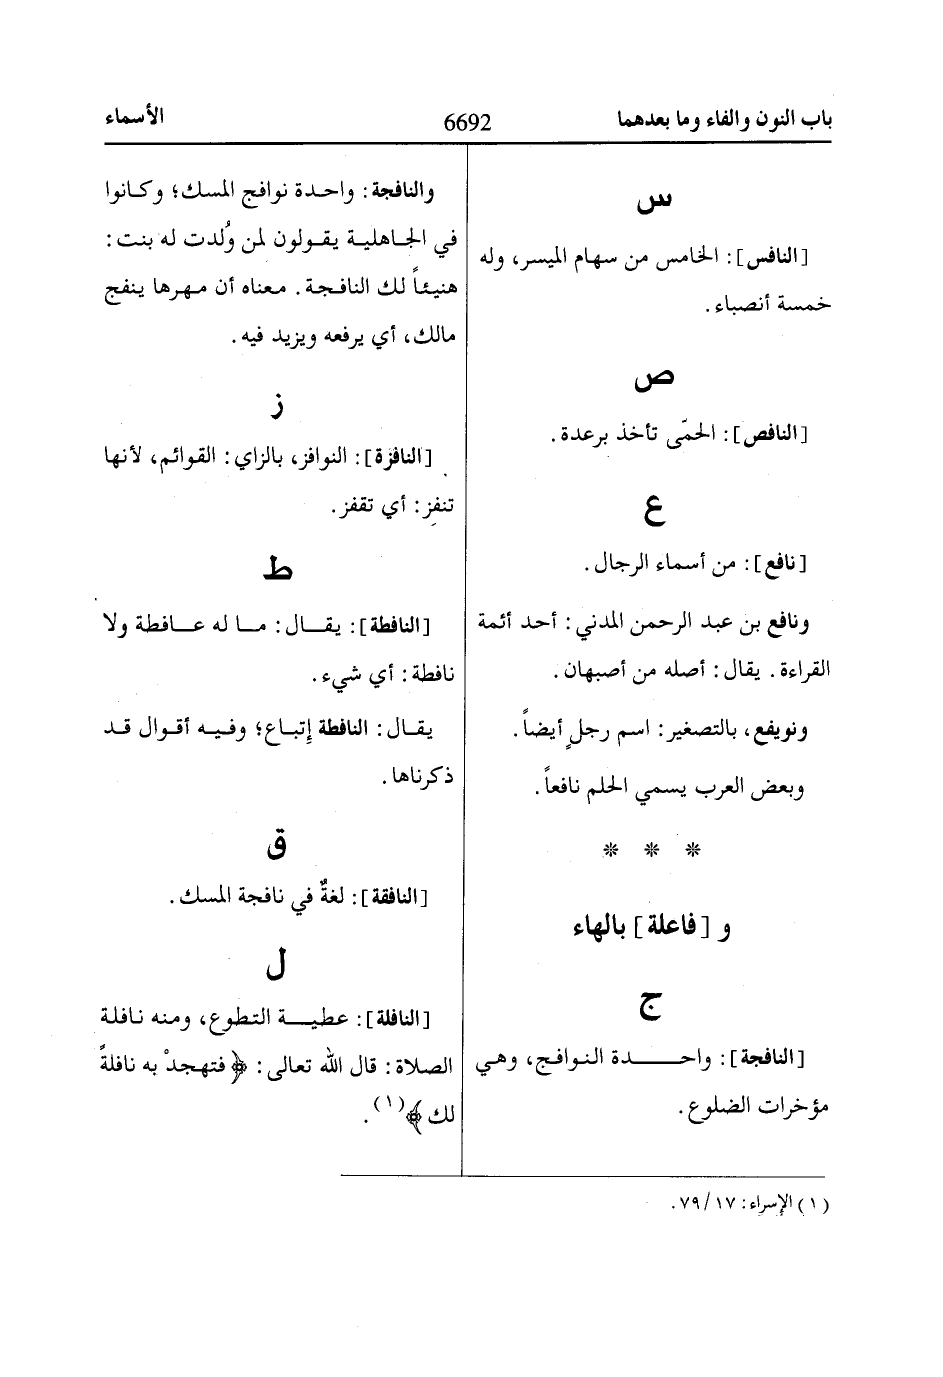 باب النون والفاء وما بعدهما
6692
الأسماء
س
[النافس]: الخامس من سهام الميسر، وله
خمسة أنصباء.
ص
[النافص]: الحمّى تأخذ برعدة.
ع
[نافع]: من أسماء الرجال.
ونافع بن عبد الرحمن المدني: أحد أئمة
القراءة. يقال: أصله من أصبهان.
ونويفع، بالتصغير: اسم رجلٍ أيضاً.
وبعض العرب يسمي الحلم نافعاً.
* * *
و [فاعلة] بالهاء
ج
[النافجة]: واحدة النوافج، وهي
مؤخرات الضلوع.
والنافجة: واحدة نوافج المسك؛ وكانوا
في الجاهلية يقولون لمن وُلدت له بنت:
هنيئاً لك النافجة. معناه أن مهرها ينفج
مالك، أي يرفعه ويزيد فيه.
ز
[النافزة]: النوافز، بالزاي: القوائم، لأنها
تنفز: أي تقفز.
ط
[النافطة]: يقال: ما له عافطة ولا
نافطة: أي شيء.
يقال: النافطة إتباع؛ وفيه أقوال قد
ذكرناها.
ق
[النافقة]: لغةٌ في نافجة المسك.
ل
[النافلة]: عطية التطوع، ومنه نافلة
الصلاة: قال الله تعالى: ﴿فتهجدْ به نافلةً
لك﴾(١).
(١) الإسراء: ١٧/٧٩.